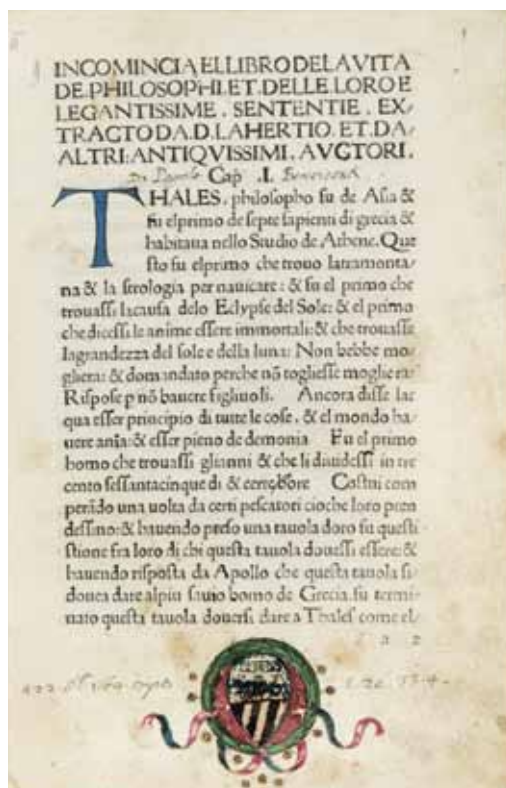 INCOMINCIA EL LIBRO DE LA VITA
DE PHILOSOPHI.ET.DELLE.LORO E
LEGANTISSIME. SENTENTIE. EX,
TRACTO DA.D.LAHERTIO.ET.DA,
ALTRI:ANTIQVISSIMI.AVCTORI.
Cap .I.
THALES. philosopho fu de Asia &
fu elprimo de septe sapienti di grecia &
habitaua nello Studio de Athene. Que
sto fu elprimo che trouo latramonta,
na & la strologia per nauicare: & fu el primo che
trouassi lacausa delo Eclypse del Sole: & el primo
che dicessi le anime essere immortali: & che trouasse
lagrandezza del sole e della luna: Non hebbe mo,
gliera: & domandato perche nõ togliesse mogliera:
Rispose p nõ hauere figliuoli. Ancora disse lac
qua esser principio di tutte le cose, & el mondo ha,
uere aniã: & esser pieno de demonia Fu el primo
homo che trouassi glianni & che li diuidessi in tre
cento sessantacinque di & Costui com
perãdo una uolta da certi pescatori cioche loro pren
dessino: & hauendo preso una tauola doro fu questi
stione fra loro di chi questa tauola douessi essere: &
hauendo risposta da Apollo che questa tauola si
douea dare alpiu sauio homo de Grecia. fu termi,
nato questa tauola douersi dare a Thales come el,
a 2